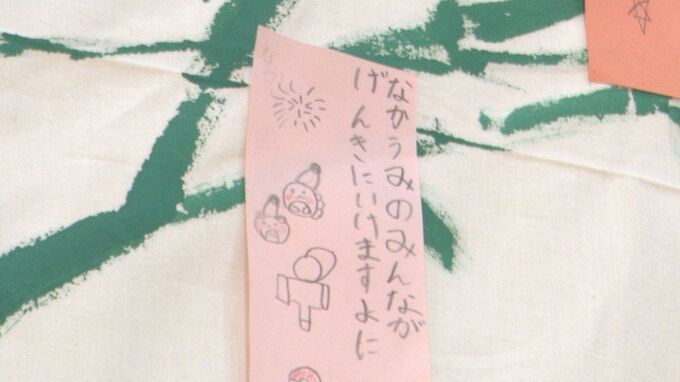 なかうみのみんなが
げんきにいけますよに